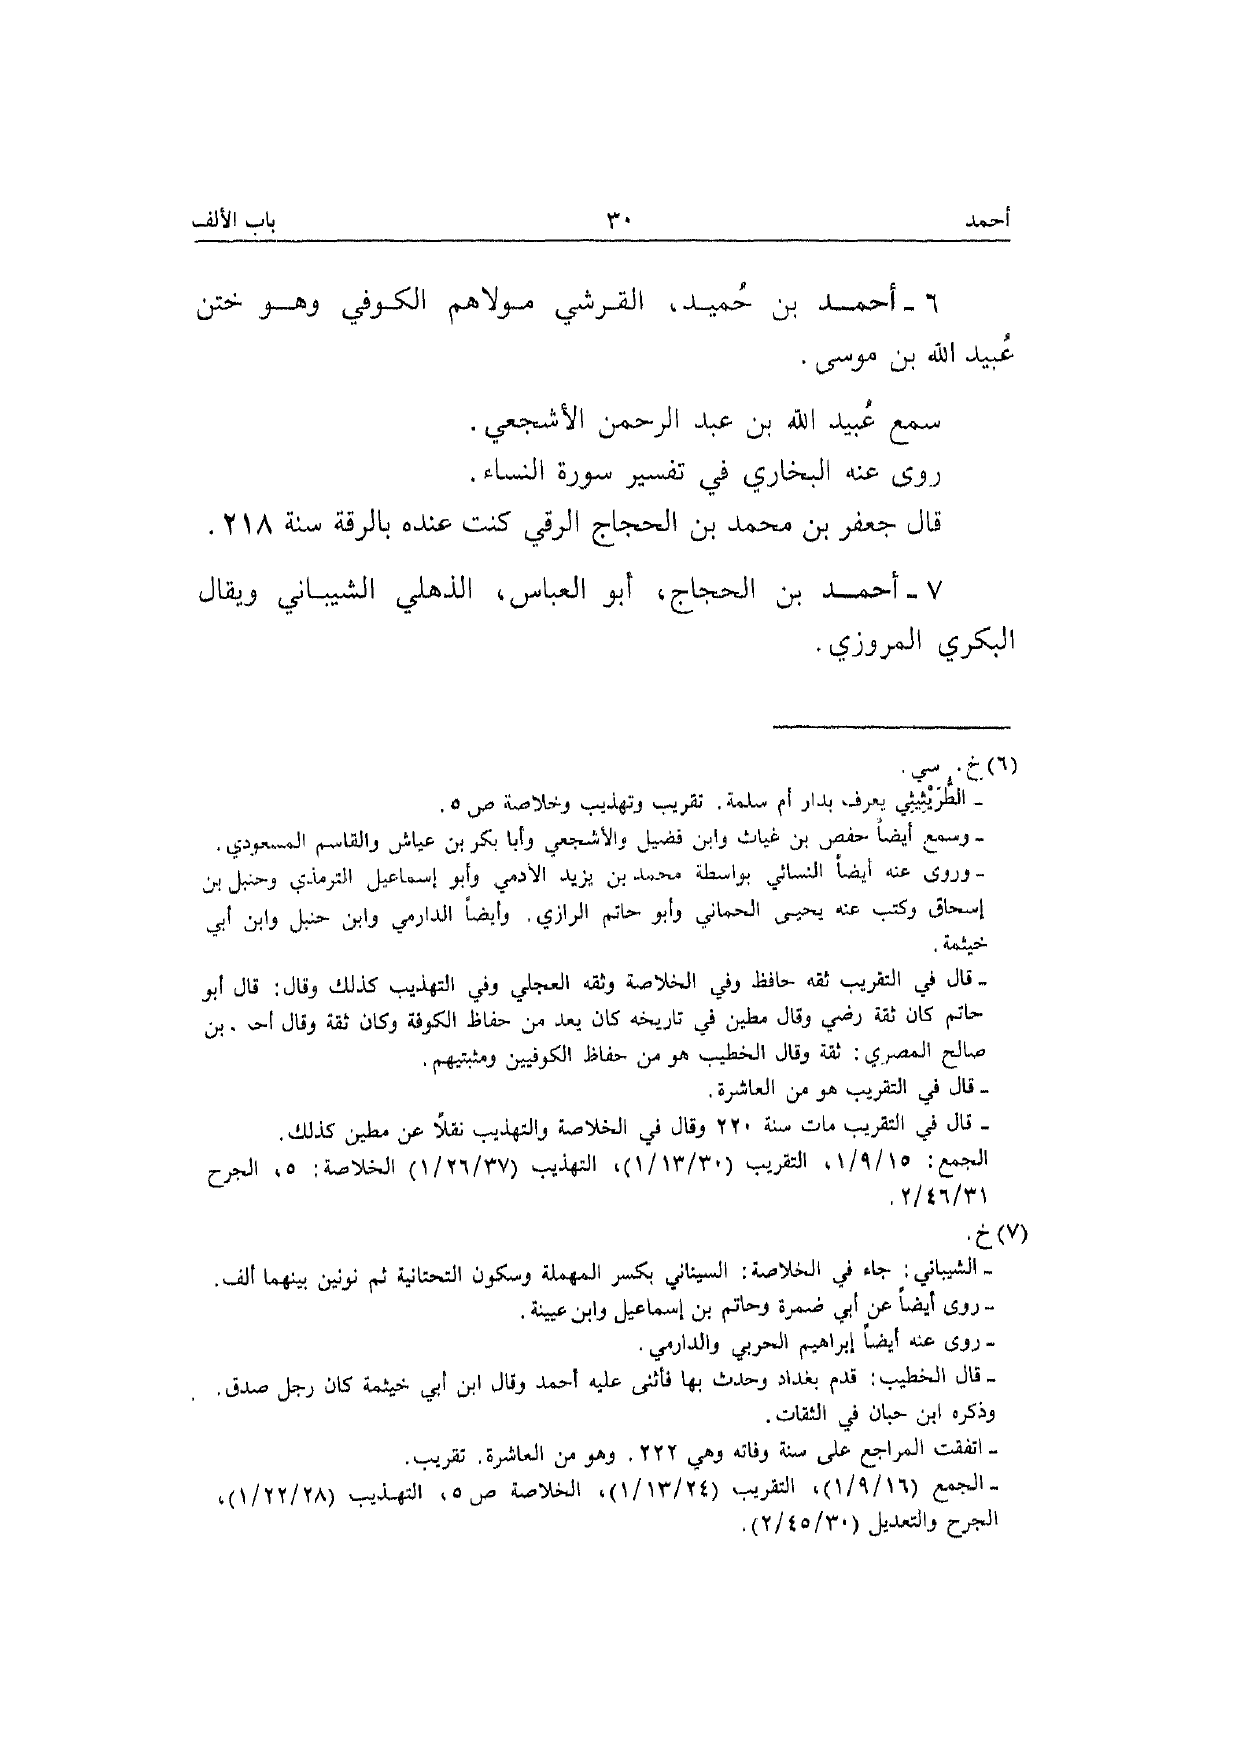 أحمد ٣٠ باب الألف
٦ ـ أحمد بن حُميد، القرشي مولاهم الكوفي وهو ختن
عُبيد الله بن موسى .
سمع عُبيد الله بن عبد الرحمن الأشجعي .
روى عنه البخاري في تفسير سورة النساء .
قال جعفر بن محمد بن الحجاج الرقي كنت عنده بالرقة سنة ٢١٨ .
٧ ـ أحمد بن الحجاج، أبو العباس، الذهلي الشيباني ويقال
البكري المروزي .
(٦) خ . سي .
ـ الطُّرَيْثِيثِي يعرف بدار أم سلمة . تقريب وتهذيب وخلاصة ص ٥ .
ـ وسمع أيضاً حفص بن غياث وابن فضيل والأشجعي وأبا بكر بن عياش والقاسم المسعودي .
ـ وروى عنه أيضاً النسائي بواسطة محمد بن يزيد الأدمي وأبو إسماعيل الترمذي وحنبل بن
إسحاق وكتب عنه يحيى الحماني وأبو حاتم الرازي . وأيضاً الدارمي وابن حنبل وابن أبي
خيثمة .
ـ قال في التقريب ثقه حافظ وفي الخلاصة وثقه العجلي وفي التهذيب كذلك وقال : قال أبو
حاتم كان ثقة رضي وقال مطين في تاريخه كان يعد من حفاظ الكوفة وكان ثقة وقال أحـ . بن
صالح المصري : ثقة وقال الخطيب هو من حفاظ الكوفيين ومثبتيهم .
ـ قال في التقريب هو من العاشرة .
ـ قال في التقريب مات سنة ٢٢٠ وقال في الخلاصة والتهذيب نقلاً عن مطين كذلك .
الجمع : ١/٩/١٥، التقريب (١/١٣/٣٠)، التهذيب (١/٢٦/٣٧) الخلاصة : ٥، الجرح
٢/٤٦/٣١ .
(٧) خ .
ـ الشيباني : جاء في الخلاصة : السيناني بكسر المهملة وسكون التحتانية ثم نونين بينهما ألف .
ـ روى أيضاً عن أبي ضمرة وحاتم بن إسماعيل وابن عيينة .
ـ روى عنه أيضاً إبراهيم الحربي والدارمي .
ـ قال الخطيب : قدم بغداد وحدث بها فأثنى عليه أحمد وقال ابن أبي خيثمة كان رجل صدق .
وذكره ابن حبان في الثقات .
ـ اتفقت المراجع على سنة وفاته وهي ٢٢٢ . وهو من العاشرة . تقريب .
ـ الجمع (١/٩/١٦)، التقريب (١/١٣/٢٤)، الخلاصة ص ٥، التهذيب (١/٢٢/٢٨)،
الجرح والتعديل (٢/٤٥/٣٠) .